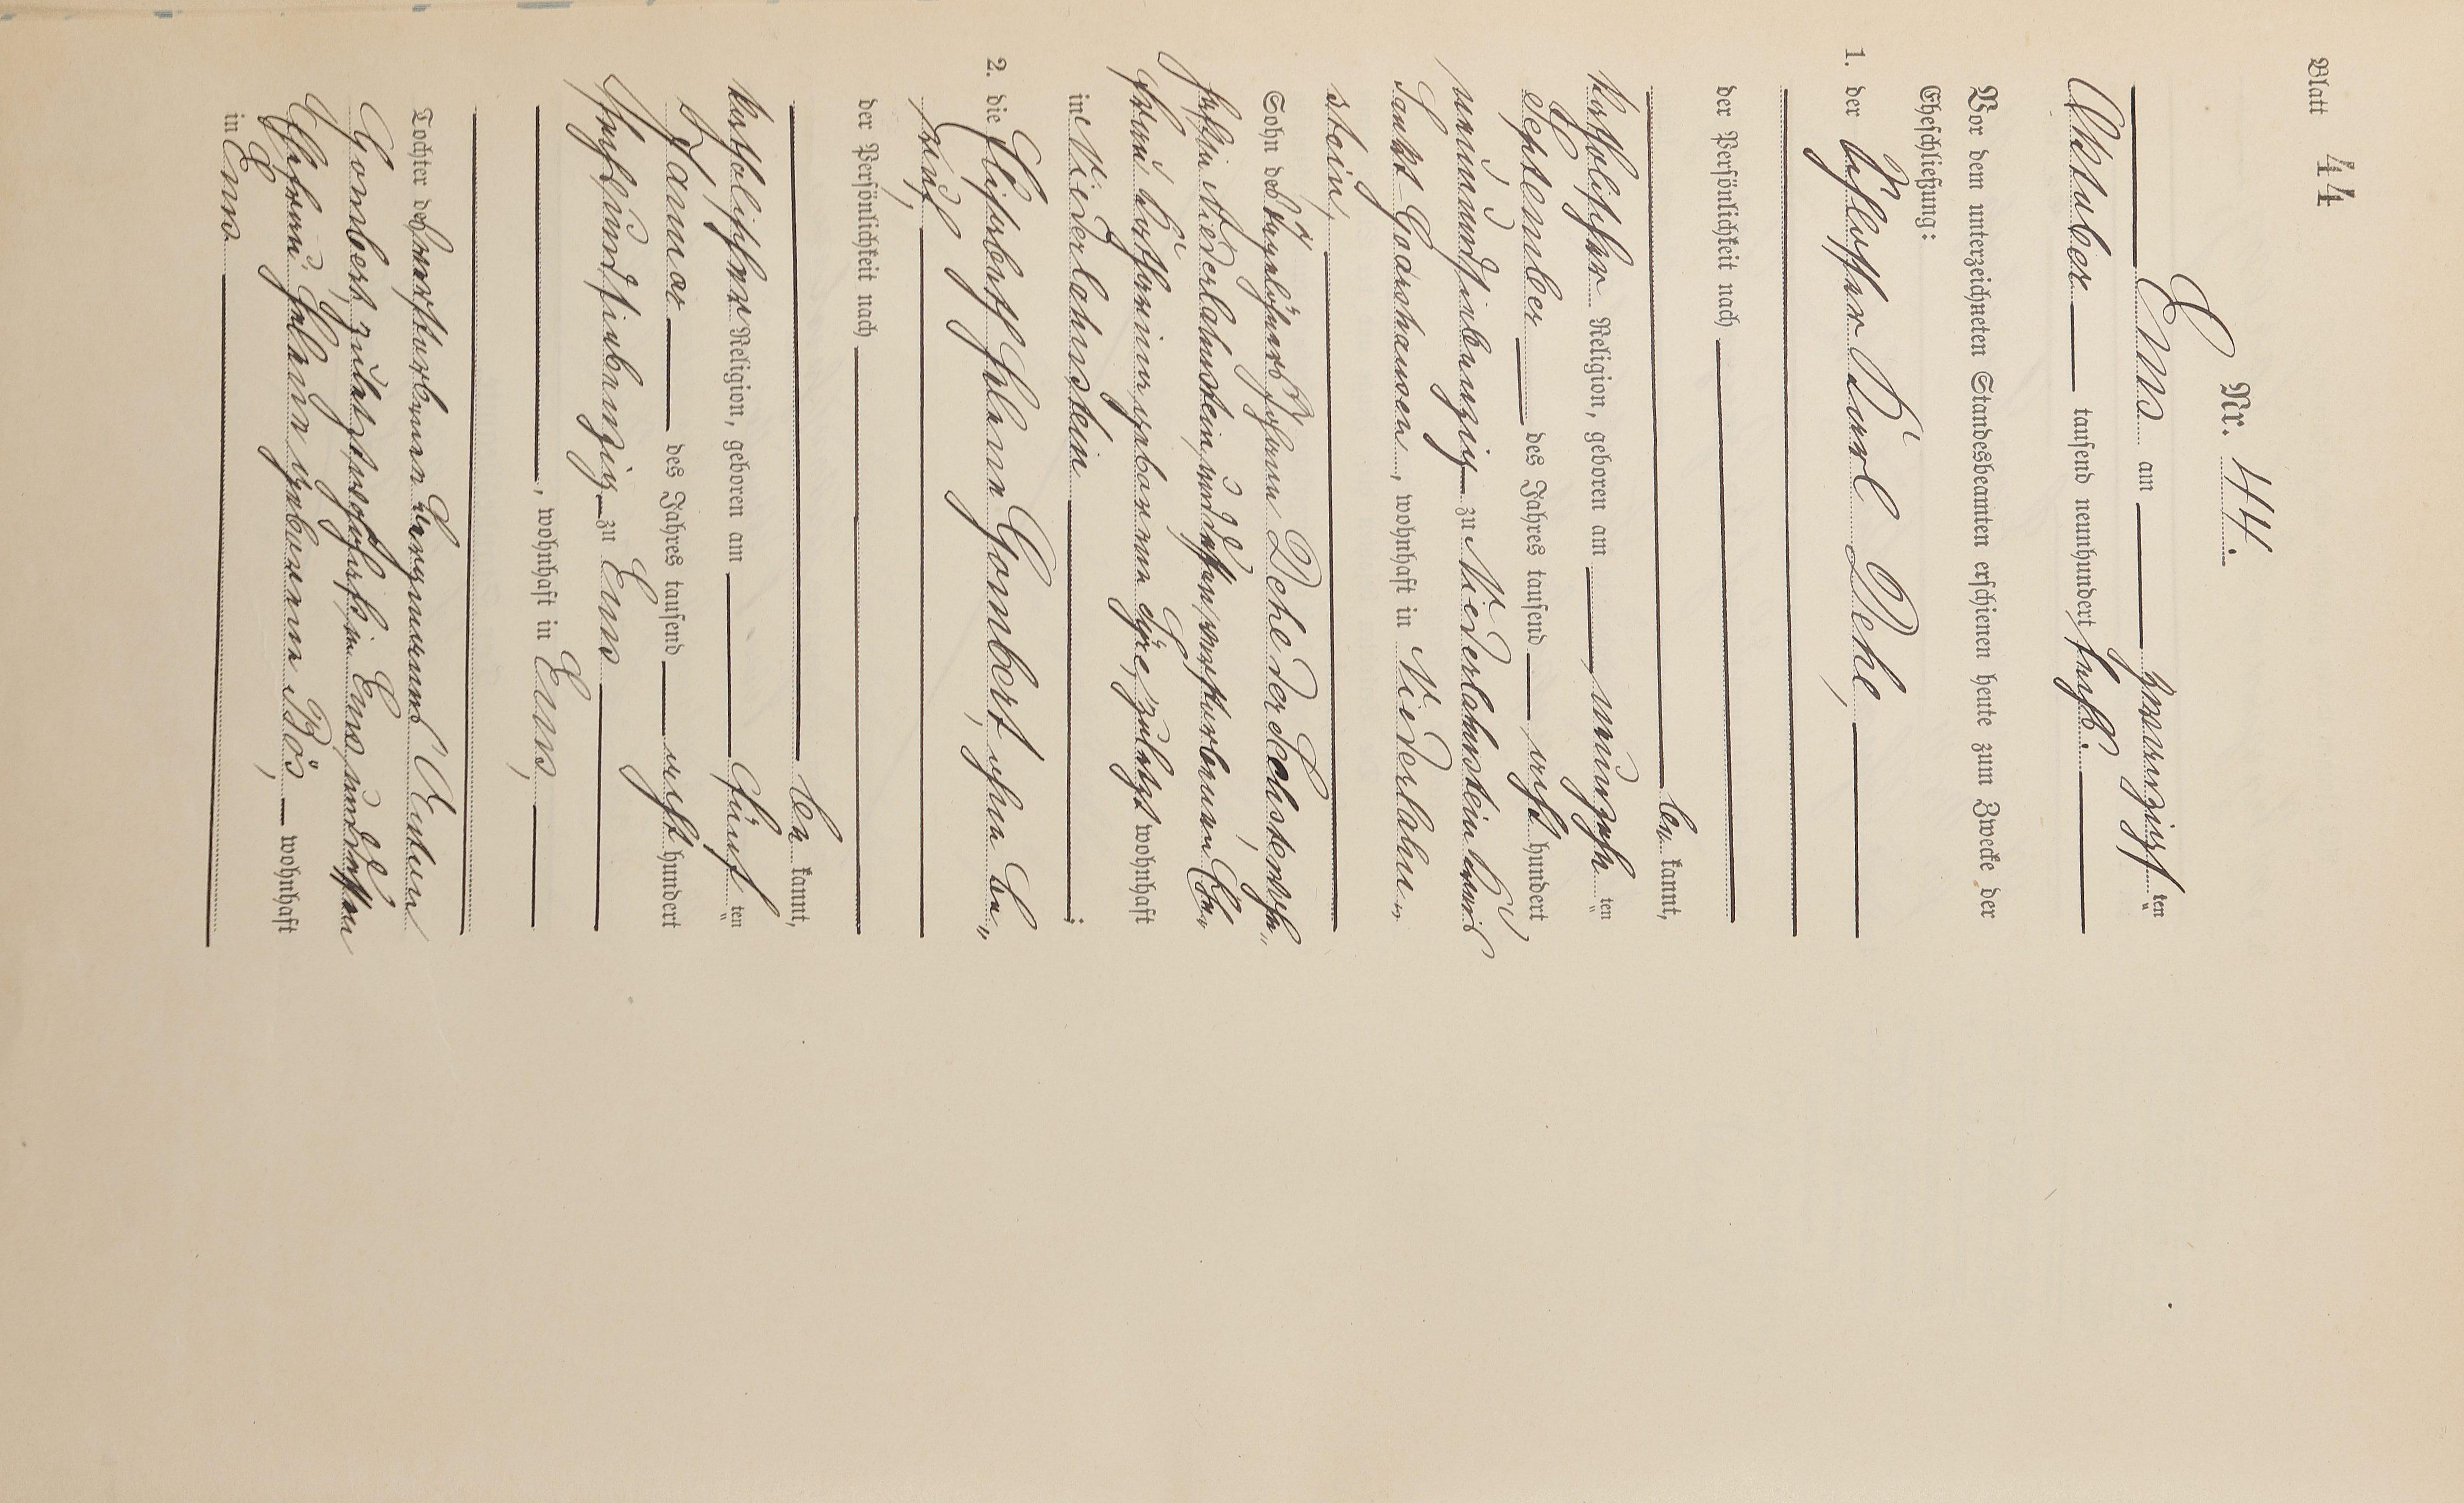 Blatt 44
Nr. 44.
Ems am zwanzigsten
Oktober tausend neunhundert sechs.
Vor dem unterzeichneten Standesbeamten erschienen heute zum Zwecke der
Eheschließung:
1. der Schlosser Karl Dehe,
der Persönlichkeit nach
be kannt,
katholischer Religion, geboren am neunzehn ten
September des Jahres tausend acht hundert
neunundsiebenzig zu Niederlahnstein Kreis
Sankt Goarshausen, wohnhaft in Niederlahn-
stein,
Sohn des Tagelöhners Johann Dehe der Echste, wohn-
haft in Niederlahnstein, und dessen verstorbenen Ehe-
frau Katharina geborenen zuletzt wohnhaft
in Niederlahnstein;
2. die Elisabeth Helene Gombert, ohne Be-
ruf,
der Persönlichkeit nach
be kannt,
katholischer Religion, geboren am fünf ten
Januar des Jahres tausend acht hundert
sechsundsiebenzig zu Ems
, wohnhaft in Ems,
Tochter des verstorbenen Bergmanns Anton
Gombert, zuletzt wohnhaft in Ems, und dessen
Ehefrau Helene geborenen Bös, wohnhaft
in Ems.